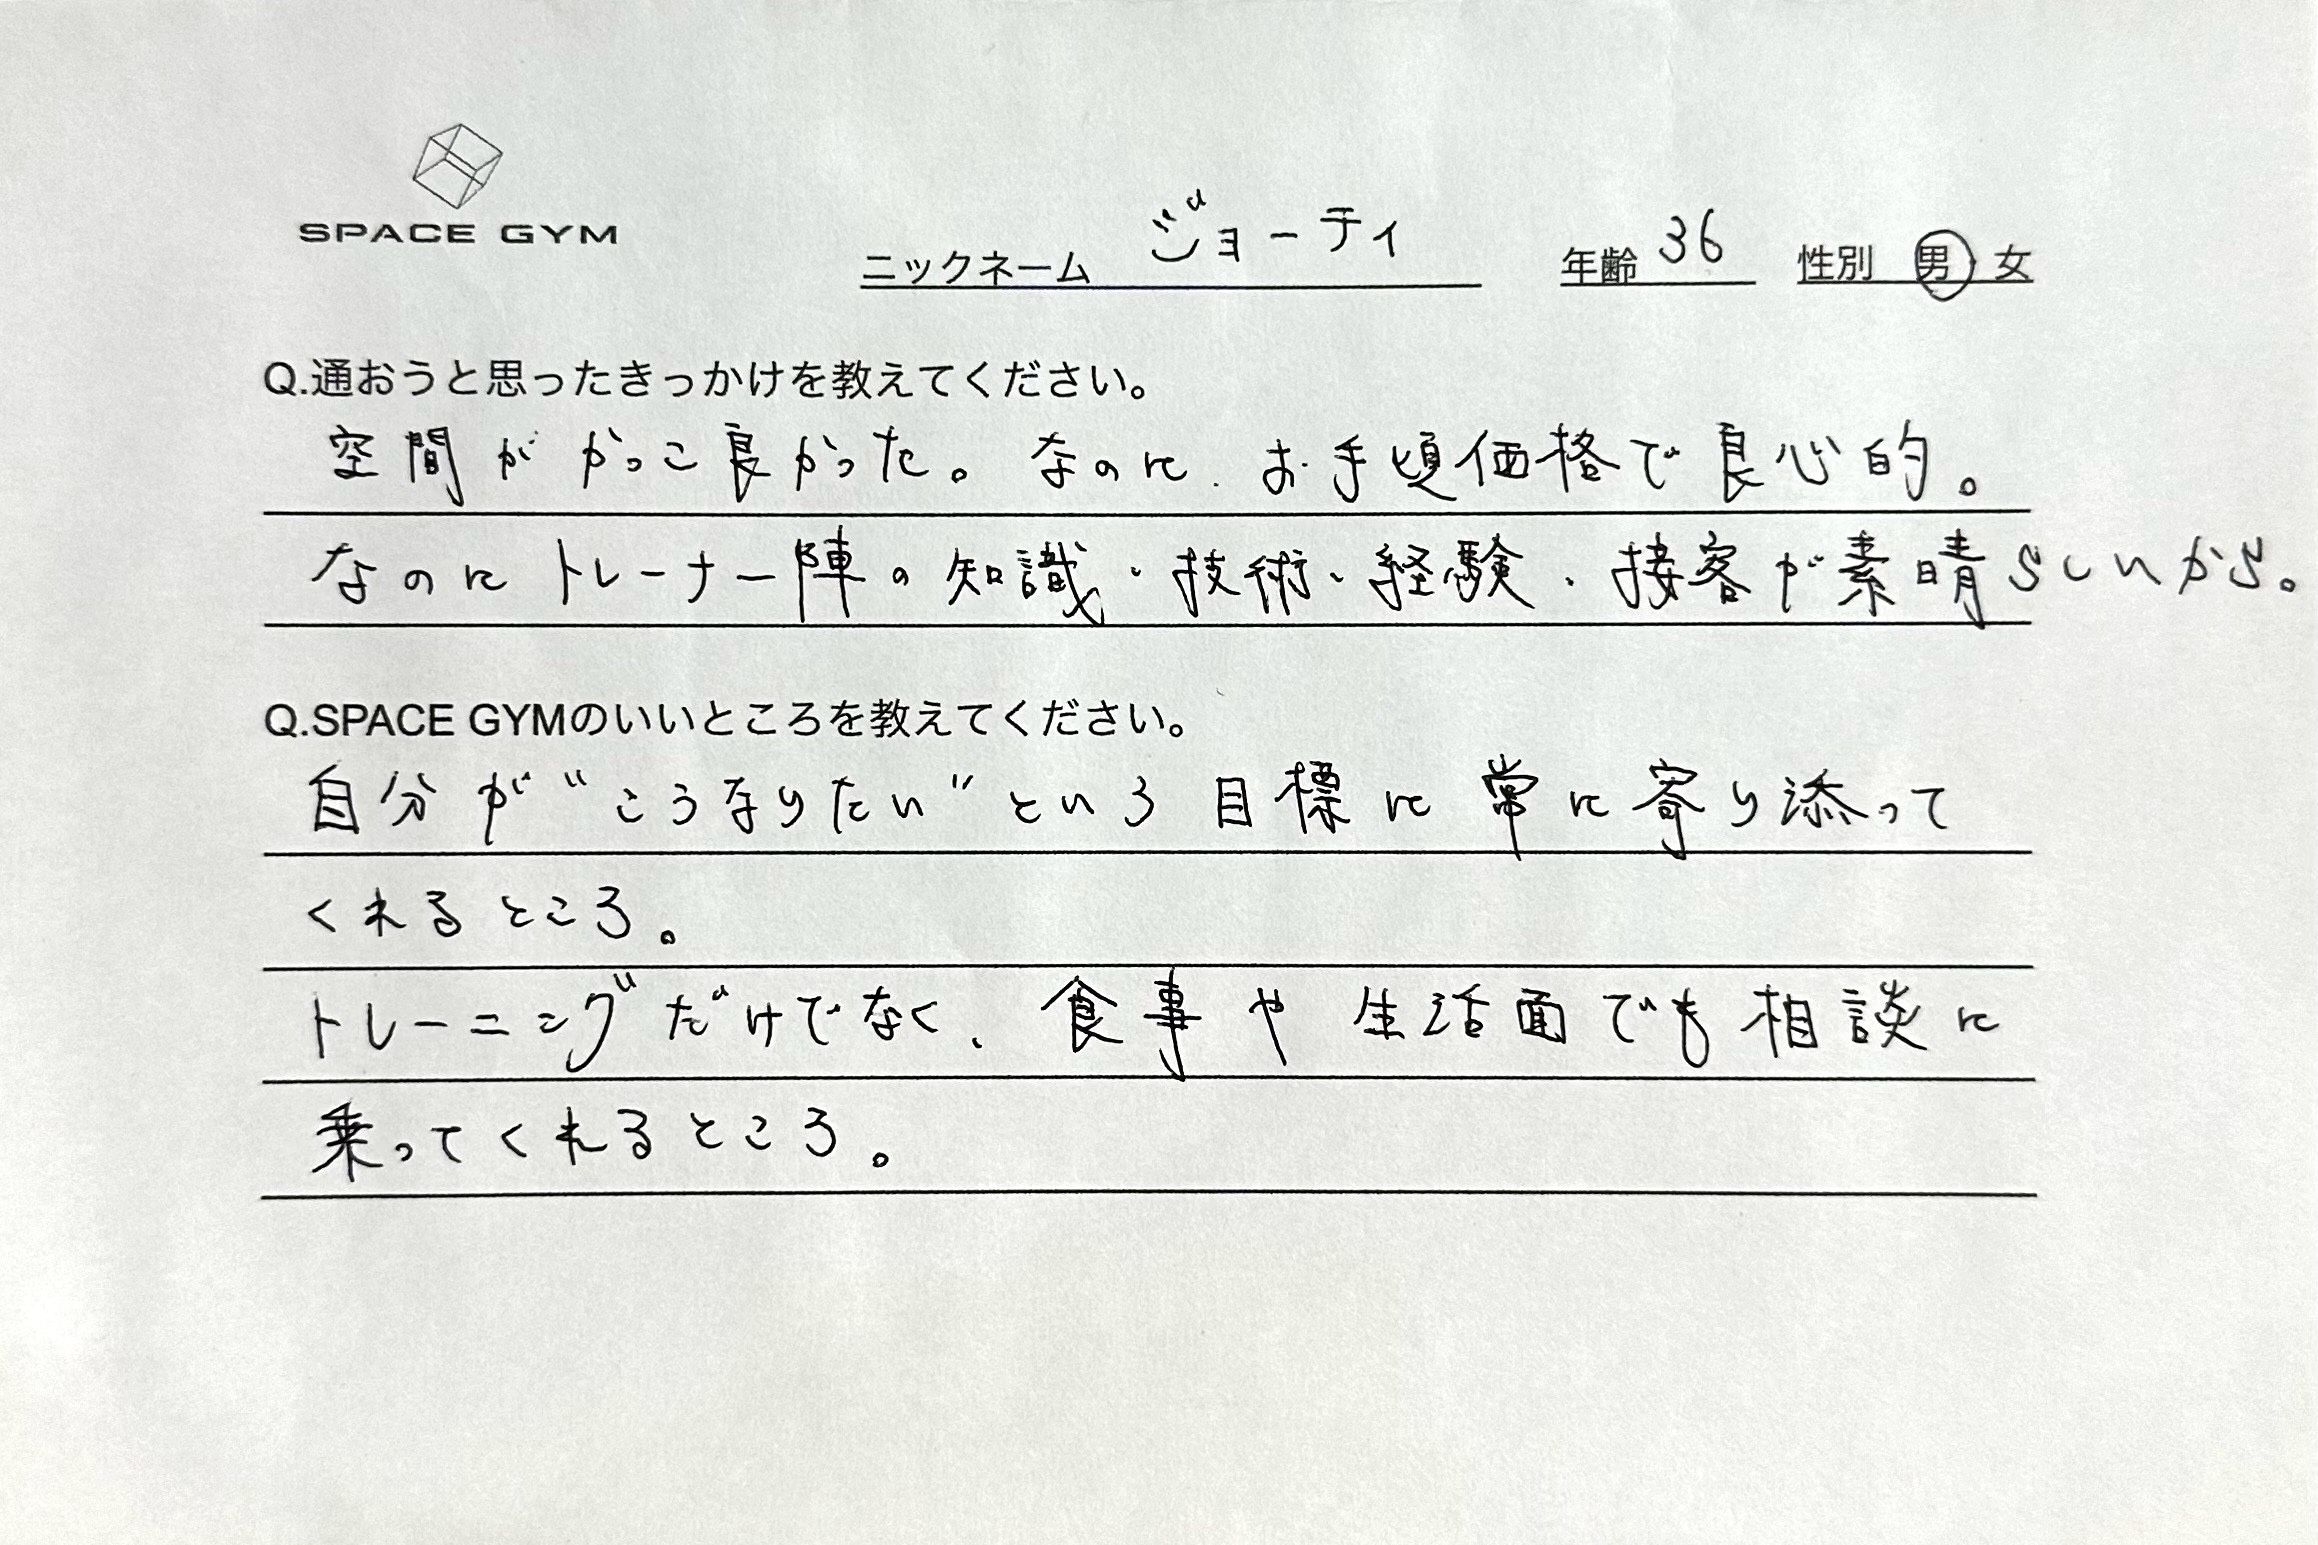 SPACE GYM
ニックネーム ジョーティ 年齢 36 性別 男・女
Q.通おうと思ったきっかけを教えてください。
空間がかっこ良かった。なのに、お手頃価格で良心的。
なのにトレーナー陣の知識・技術・経験・接客が素晴らしいから。
Q.SPACE GYMのいいところを教えてください。
自分が"こうなりたい"という目標に常に寄り添って
くれるところ。
トレーニングだけでなく、食事や生活面でも相談に
乗ってくれるところ。